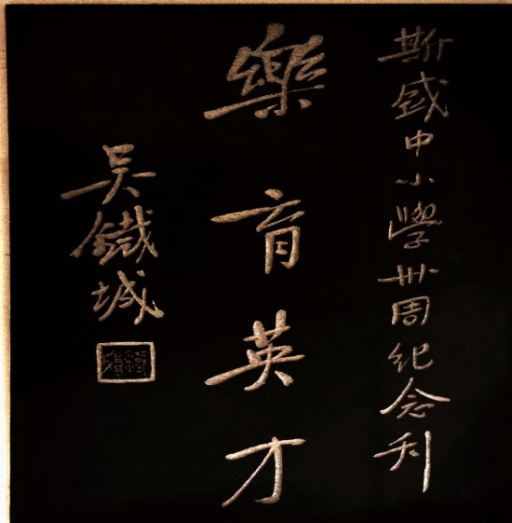 斯盛中小學卅周纪念刊
樂育英才
吳鐵城